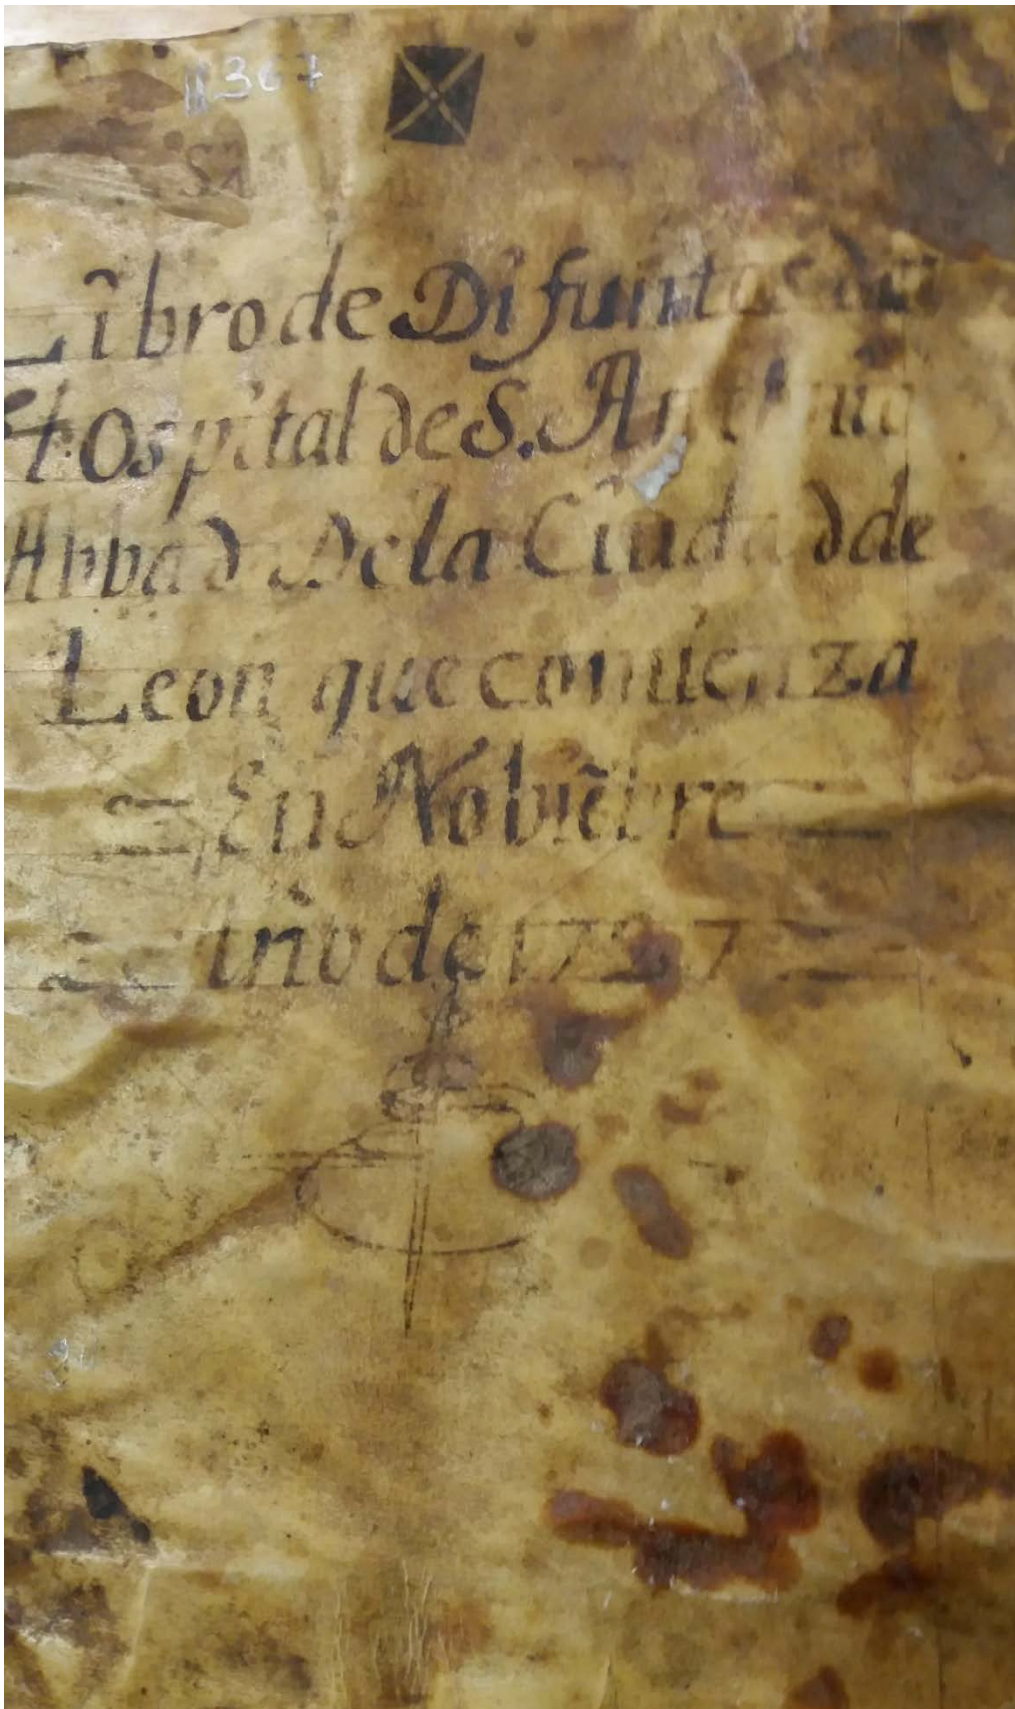 367
Libro de Difuntos del
Hospital de S. Antonio
Abbad De la Ciudad de
Leon que comienza
En Nobiẽbre
Año de 1727